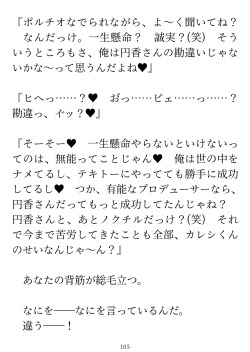 『ポルチオなでられながら、よ〜く聞いてね？
　なんだっけ。一生懸命？　誠実？(笑)　そう
いうところもさ、俺は円香さんの勘違いじゃな
いかな〜って思うんだよね♥』
『ヒヘっ……？♥　おっ……ピェ……っ……？
勘違っ、イッ？♥』
『そーそー♥　一生懸命やらないといけないっ
てのは、無能ってことじゃん♥　俺は世の中を
ナメてるし、テキトーにやってても勝手に成功
してるし♥　つか、有能なプロデューサーなら、
円香さんだってもっと成功してたんじゃね？
円香さんと、あとノクチルだっけ？(笑)　それ
で今まで苦労してきたことも全部、カレシくん
のせいなんじゃ〜ん？』
　あなたの背筋が総毛立つ。
　なにを――なにを言っているんだ。
　違う――！
105